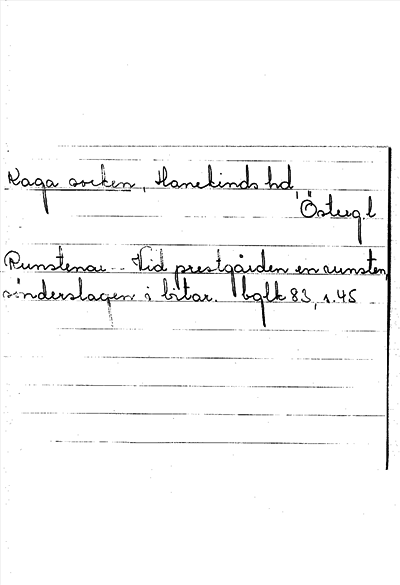 Kaga socken, Hanekinds hd,
Österg.l
Runstenar - Vid prestgården en runsten,
sönderslagen i bitar. bglk 83, s. 45